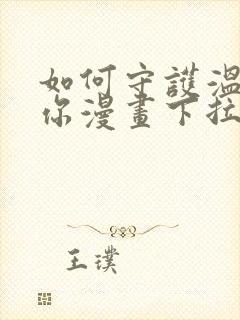 如何守護溫
你漫畫下拉
王璞